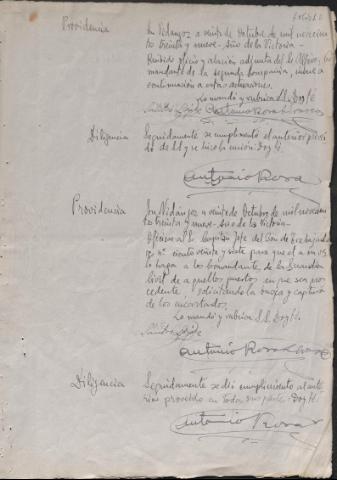 Providencia
En Vidángoz a veinte de Octubre de mil novecien
tos treinta y nueve. Año de la Victoria.-
Recibido oficio y relación adjunta del
mandante de la segunda Compañía, únase a
continuación a estas actuaciones.
Lo mandó y rubrica S.S. Doy fé
Diligencia
Seguidamente se cumplimentó el anterior proveí
do de S.S y se hizo la unión. Doy fé.
Antonio Rosa
Providencia
En Vidángoz a veinte de Octubre de mil novecien
tos treinta y nueve. Año de la Victoria.
Ofíciese al Sr Capitán Jefe del Bon de Trabajado
res nº ciento veinte y siete para que a su vez
lo haga a los Comandantes de la Guardia
Civil de aquellos puestos en que sea pro
cedente solicitando la busca y captura
de los encartados.
Lo mandó y rubrica S.S. Doy fé.
Antonio Rosa
Diligencia
Seguidamente se dió cumplimiento al ante
rior proveído en todas sus partes. Doy fé
Antonio Rosa